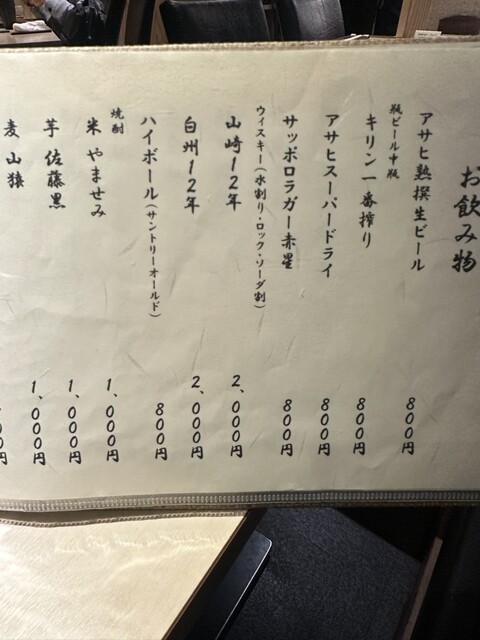 お飲み物
アサヒ熱撰生ビール 800円
瓶ビール中瓶
キリン一番搾り 800円
アサヒスーパードライ 800円
サッポロラガー赤星 800円
ウィスキー(水割り・ロック・ソーダ割)
山崎12年 2,000円
白州12年 2,000円
ハイボール(サントリーオールド) 800円
焼酎
米 やませみ 1,000円
芋 佐藤黒 1,000円
麦 山猿 1,000円